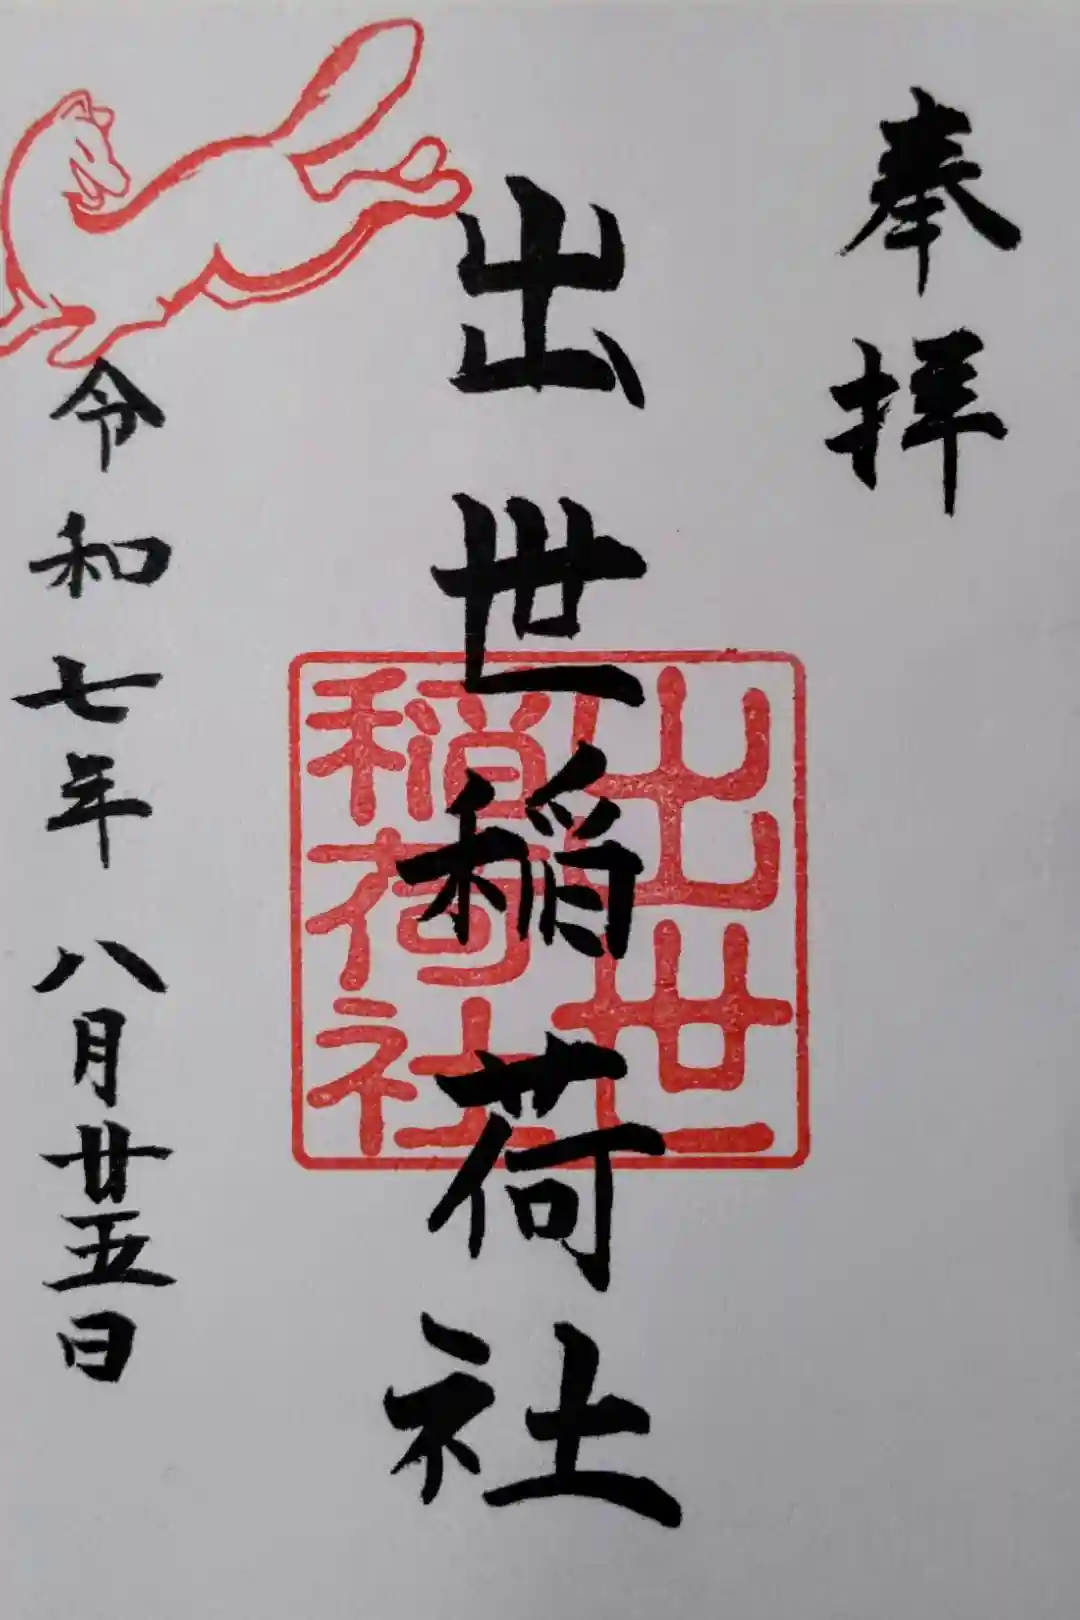 奉拝
出世稲荷社
出世
稲荷社
令和七年 八月廿五日